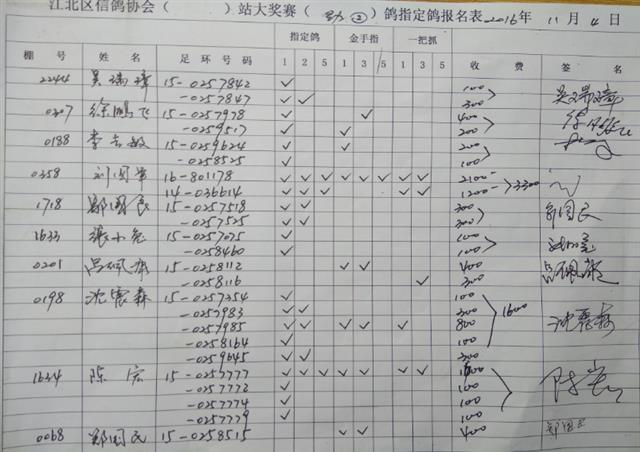 江北区信鸽协会（ ）站大奖赛（ ②）鸽指定鸽报名表 2016年 11月 4日
指定鸽 金手指 一把抓
棚号 姓名 足环号码 1 2 5 1 3 5 1 3 5 收费 签名
2244 吴瑞璋 15-0257842 ✓ 100 吴瑞璋
-0257847 ✓ ✓ 300
0207 徐鹏飞 15-0257978 ✓ ✓ 400
-0259517 ✓ ✓ 200
0188 李志敏 15-0259624 ✓ ✓ 200
-0258525 ✓ 100
0358 刘国华 16-801178 ✓ ✓ ✓ ✓ ✓ ✓ ✓ ✓ 2100 3300
14-036614 ✓ ✓ ✓ ✓ ✓ 1200
1718 郑国良 15-0257518 ✓ ✓ 300
-0257525 ✓ ✓ 300
1633 张小亮 15-0257075 ✓ 100
-0258460 ✓ 100
0201 吕佩康 15-0258112 ✓ ✓ 400 吕佩康
-0258116 ✓ 300
0198 沈震森 15-0257254 ✓ 100
-0257983 ✓ ✓ 300 1600
-0257985 ✓ ✓ ✓ ✓ ✓ 800 沈震森
-0258164 ✓ 100
-0259645 ✓ ✓ 300
1634 陈宏 15-0257777 ✓ ✓ ✓ ✓ ✓ ✓ ✓ 陈宏
-0257772 ✓ 100
-0257774 ✓ 100
-0257779 ✓ 100
0068 郑国民 15-0258515 ✓ ✓ 400 郑国民